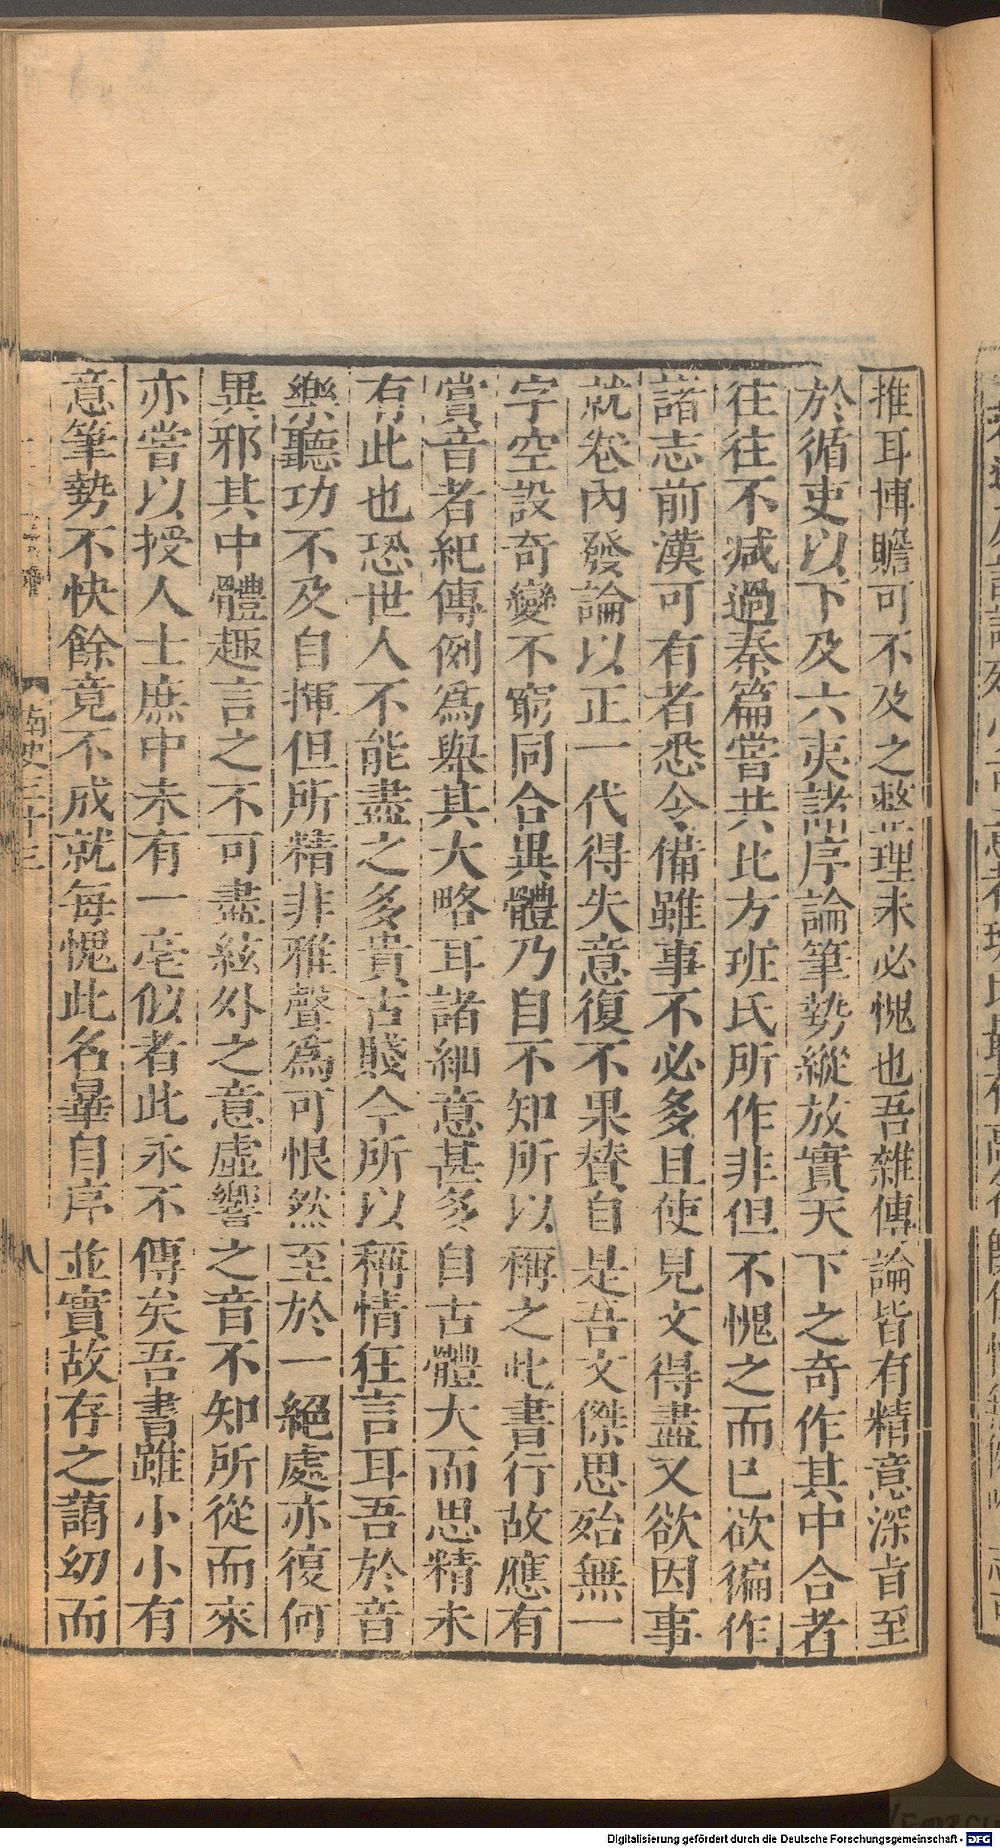 推耳博贍可不及之整理未必愧也吾雜傳論皆有精意深旨至
於循吏以下及六夷諸序論筆勢縱放實天下之奇作其中合者
往往不減過秦篇嘗共比方班氏所作非但不愧之而已欲徧作
諸志前漢可有者悉令備雖事不必多且使見文得盡又欲因事
就卷內發論以正一代得失意復不果贊自是吾文傑思殆無一
字空設奇變不窮同合異體乃自不知所以稱之此書行故應有
賞音者紀傳例為舉其大略耳諸細意甚多自古體大而思精未
有此也恐世人不能盡之多貴古賤今所以稱情狂言耳吾於音
樂聽功不及自揮但所精非雅聲為可恨然至於一絕處亦復何
異邪其中體趣言之不可盡絃外之意虛響之音不知所從而來
亦嘗以授人士庶中未有一毫似者此永不傳矣吾書雖小小有
意筆勢不快餘竟不成就每愧此名曄自序並實故存之藹幼而
南史三十三
八
Digitalisierung gefördert durch die Deutsche Forschungsgemeinschaft - DFG